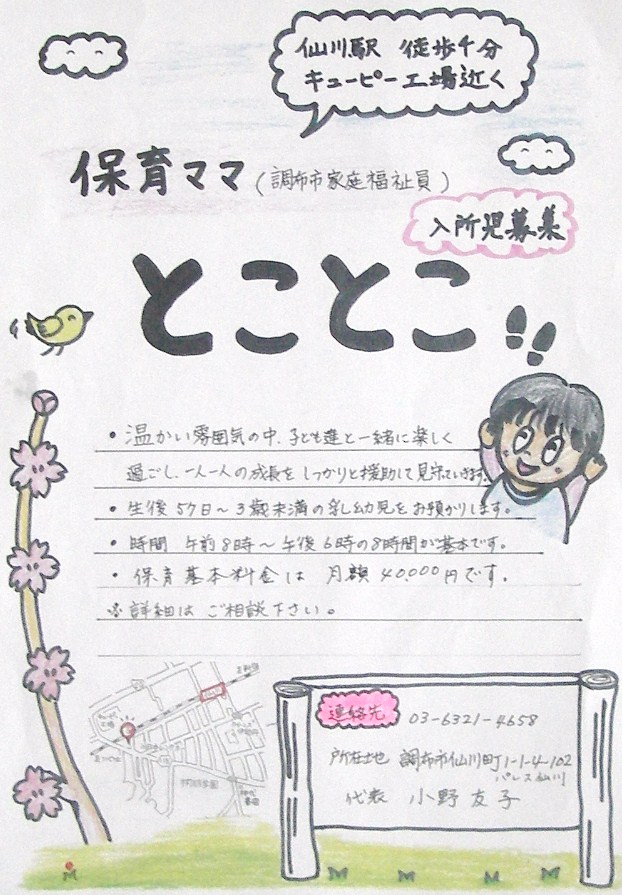 仙川駅 徒歩千分
キューピー工場近く
保育ママ(調布市家庭福祉員)
入所児募集
とことこ
・温かい雰囲気の中、子ども達と一緒に楽しく
過ごし、一人一人の成長をしっかりと援助して見守っていきます。
・生後57日～3歳未満の乳幼児をお預かりします。
・時間 午前8時～午後6時の8時間が基本です。
・保育基本料金は 月額40,000円です。
※詳細は ご相談下さい。
連絡先 03-6321-4658
所在地 調布市仙川町1-1-4-102
パレス仙川
代表 小野友子